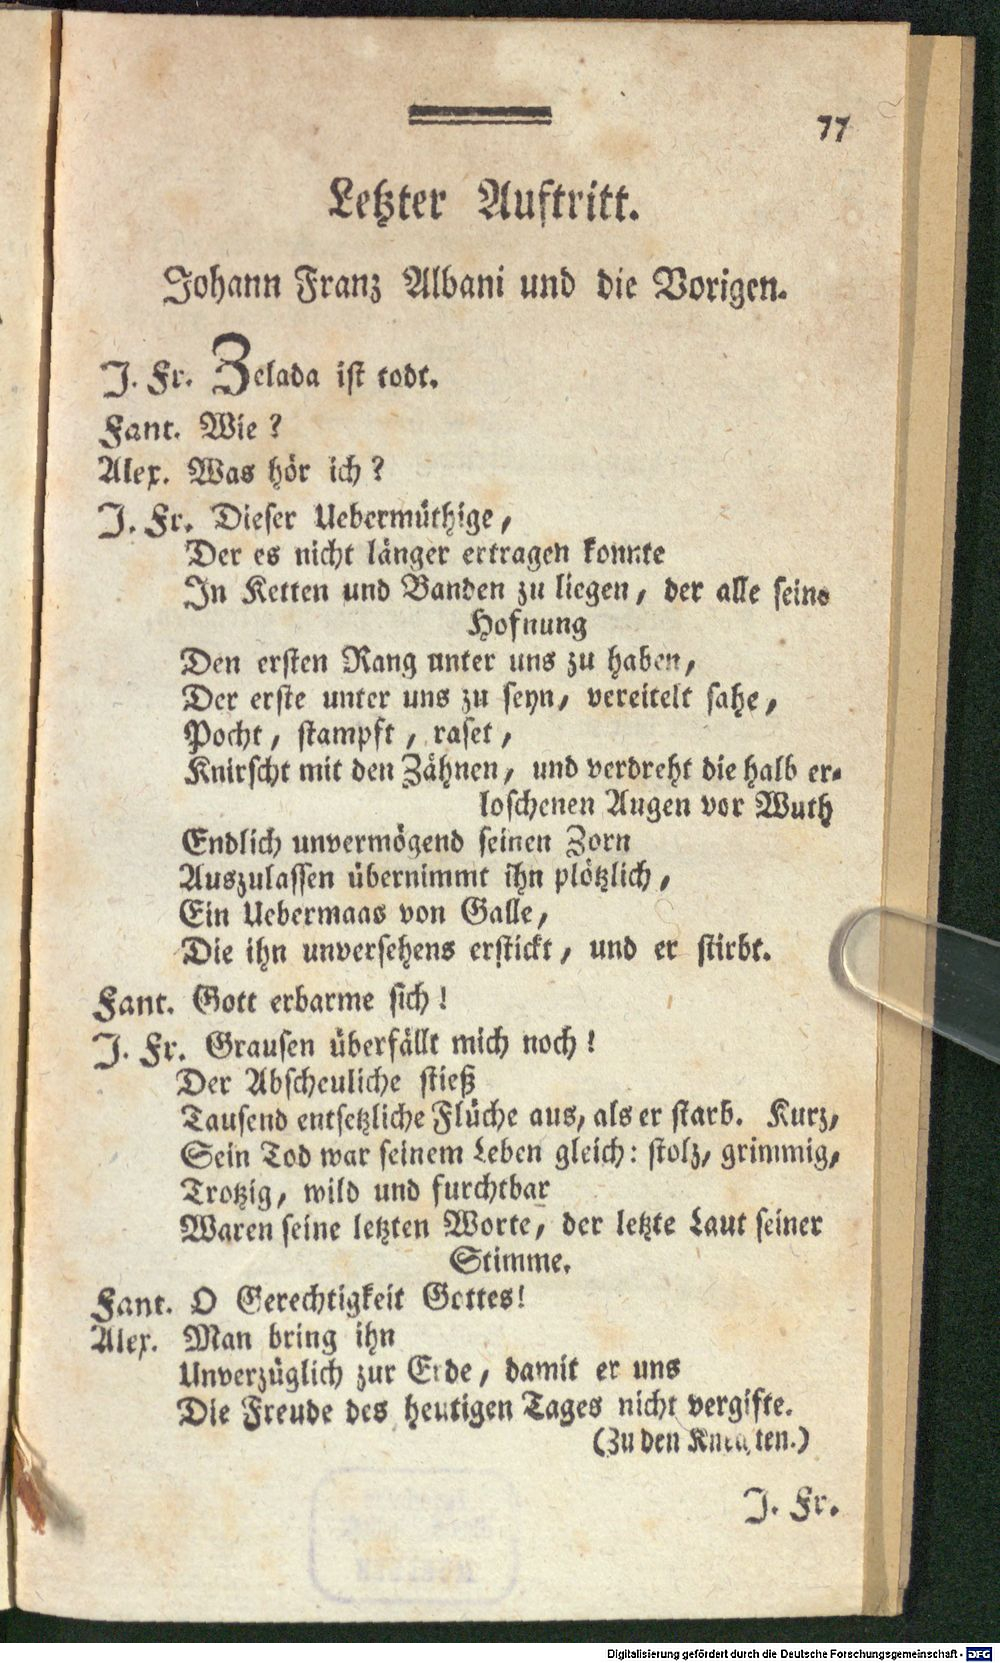 77
Letzter Auftritt.
Johann Franz Albani und die Vorigen.
J. Fr. Zelada ist todt.
Fant. Wie?
Alex. Was hör ich?
J. Fr. Dieser Uebermüthige,
Der es nicht länger ertragen konnte
In Ketten und Banden zu liegen, der alle seine
Hofnung
Den ersten Rang unter uns zu haben,
Der erste unter uns zu seyn, vereitelt sahe,
Pocht, stampft, raset,
Knirscht mit den Zähnen, und verdreht die halb er-
loschenen Augen vor Wuth
Endlich unvermögend seinen Zorn
Auszulassen übernimmt ihn plötzlich,
Ein Uebermaas von Galle,
Die ihn unversehens erstickt, und er stirbt.
Fant. Gott erbarme sich!
J. Fr. Grausen überfällt mich noch!
Der Abscheuliche stieß
Tausend entsetzliche Flüche aus, als er starb. Kurz,
Sein Tod war seinem Leben gleich: stolz, grimmig,
Trotzig, wild und furchtbar
Waren seine letzten Worte, der letzte Laut seiner
Stimme.
Fant. O Gerechtigkeit Gottes!
Alex. Man bring ihn
Unverzüglich zur Erde, damit er uns
Die Freude des heutigen Tages nicht vergifte.
(Zu den Knechten.)
J. Fr.
Digitalisierung gefördert durch die Deutsche Forschungsgemeinschaft - DFG